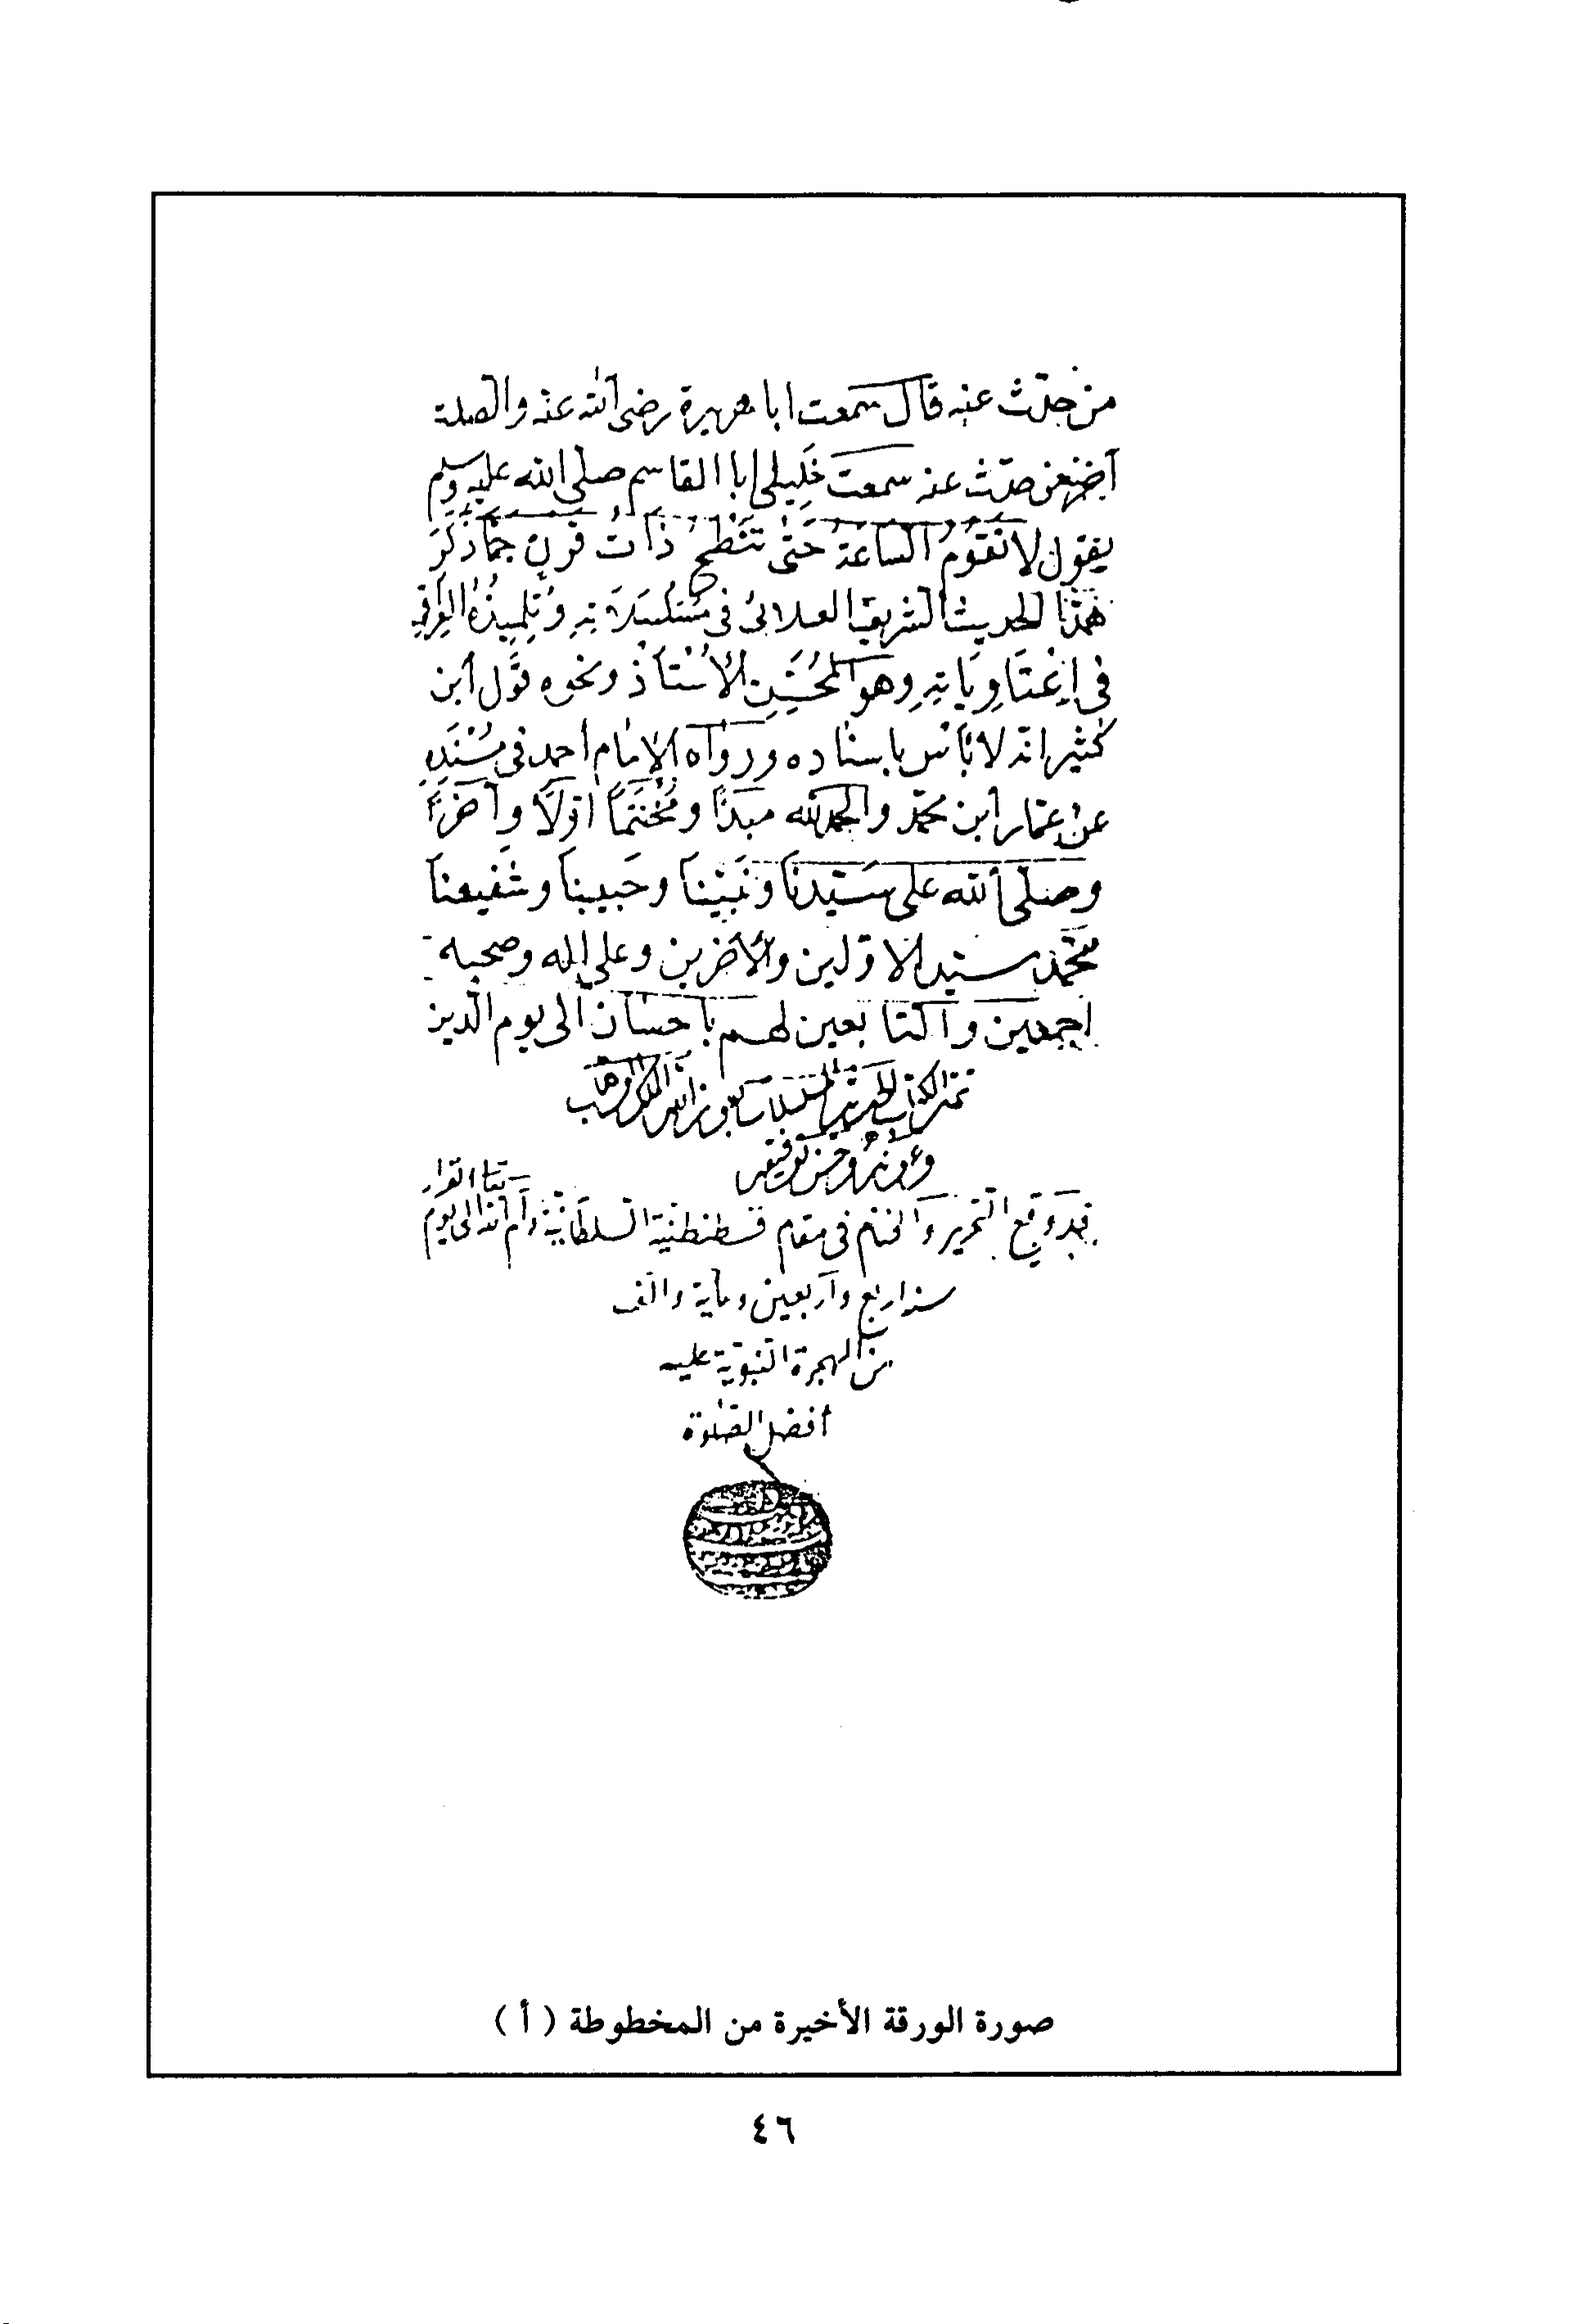 من حدّث عنه قال سمعت ابا هريرة رضى الله عنه والصلة
آخر من حدّث عنه سمعت خَلِيلى ابا القاسم صلى الله عليه وسلم
يقول لا تقوم السّاعَة حَتّى تَنْطَحُ ذَاتُ قَرنٍ جمّا ذكَرَ
هٰذا الحديث الشريف العلائىُ فى مُسَلسَلاتِهِ وَتلمِيذُهُ العراقى
فى وهو ونحوه قَول ابن
كثير انّه لا بَأسَ باسناده ورواه الامام احمد فى مُسْنَدِهِ
عن عمّار ابن محمّد والحمد لله مبدَأً ومُختتماً اوّلاً وآخراً
وصلى الله على سَيّدنَا وَنَبيّنا وحَبيبنا وشَفيعنا
محَمّد سيّد الاوّلين والأخرين وعلى اله وصحبه
اجمعين والتّابعين لهم باحسان الى يوم الدّين
تمّت الكتاب بعون الله الملك الوهّاب
وحسن توفيقه
قد وَقع التّحرير وَالختام فى مقام قسطنطنية السّلطانيّة الى يَوم
القرار
سنه اربع وأربعين وماية والف
من الهجرة النّبويّة عليه
أفضل الصّلوة
صورة الورقة الأخيرة من المخطوطة ( أ )
٤٦